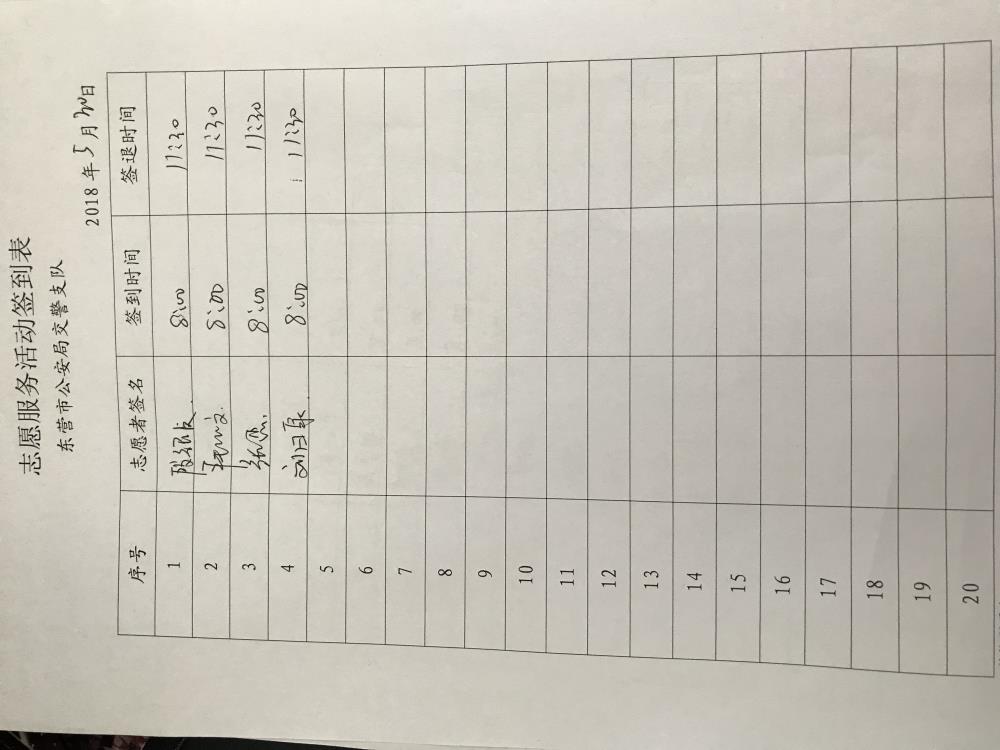 志愿服务活动签到表
东营市公安局交警支队
2018 年 5 月 30 日
序号 志愿者签名 签到时间 签退时间
1 8:00 11:30
2 8:00 11:30
3 8:00 11:30
4 8:00 11:30
5
6
7
8
9
10
11
12
13
14
15
16
17
18
19
20